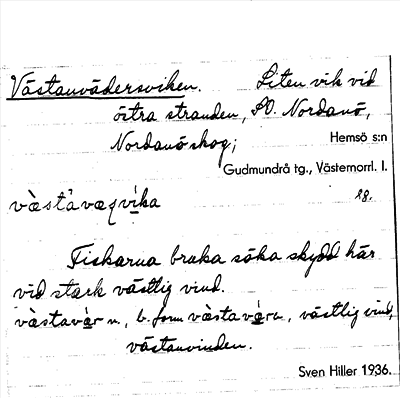 Västanvädersviken. Liten vik vid
östra stranden, SO. Nordanö,
Nordanö skog; Hemsö s:n
Gudmundrå tg., Västernorrl. l.
18.
Fiskarna bruka söka skydd här
vid stark västlig vind.
västavär n, b. form västaväre, västlig vind,
västanvinden.
Sven Hiller 1936.